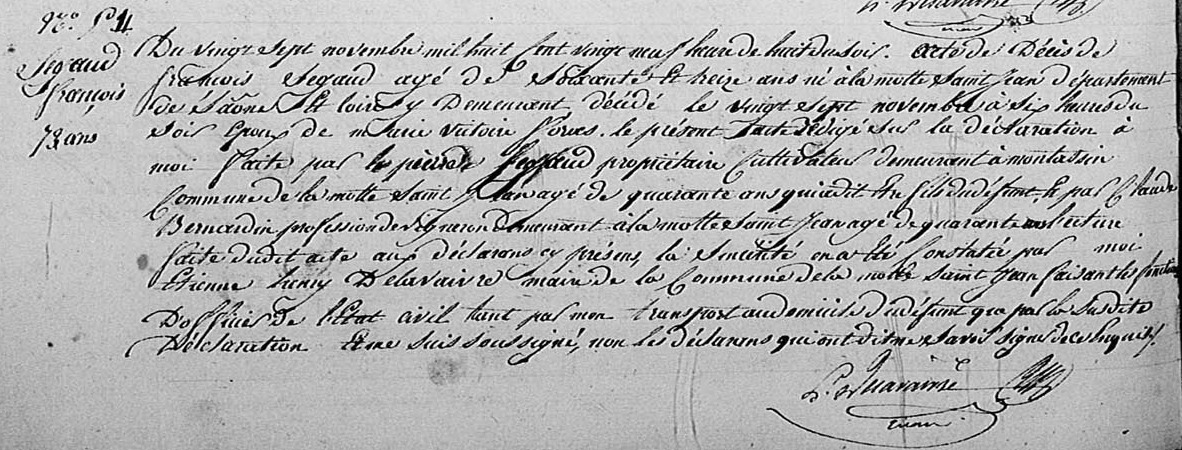 Segaud
françois
73 ans
Du vingt sept novembre mil huit cent vingt neuf heure de huit du soir. acte de Décès de
françois Segaud agé de Soixante Et treize ans né à la motte Saint Jean département
de Saône Et loire y Demeurant décédé le vingt sept novembre à six heures du
soir Epoux de victoire le présent acte rédigé sur la déclaration à
moi faite par pierre Segaud propriétaire Cultivateur demeurant à montassin
Commune de la motte Saint Jean agé de quarante ans qui a dit Etre fils du défunt, Et par Claude
Bernardin profession de vigneron Demeurant à la motte Saint Jean agé de quarante lecture
faite dudit acte aux déclarans cy présens, la Sincérité en a Eté Constatée par moi
Etienne henry Delavaivre maire de la Commune de la motte Saint Jean faisant les fonctions
D'officier de l'Etat civil tant par mon transport au domicile du défunt que par la Susdite
Déclaration Et me suis soussigné, non les déclarans qui ont dit ne savoir signer de ce Enquis.
maire